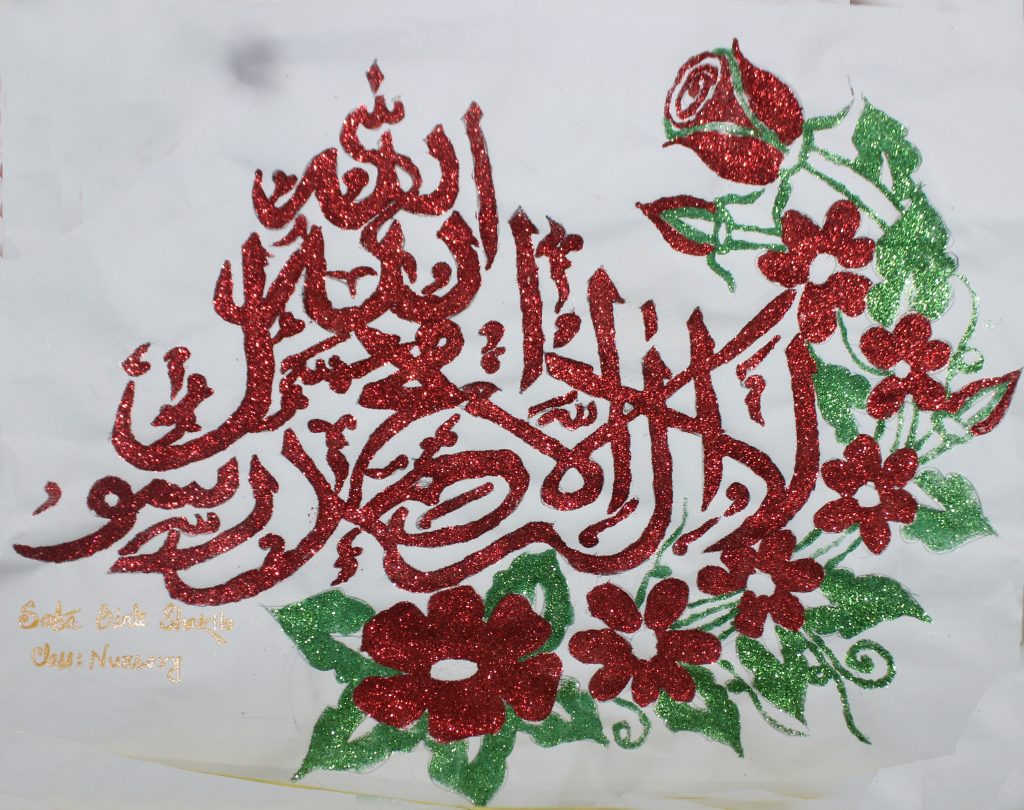 لا إله إلا الله محمد رسول الله
Saba Bint Shakib
Class: Nursery